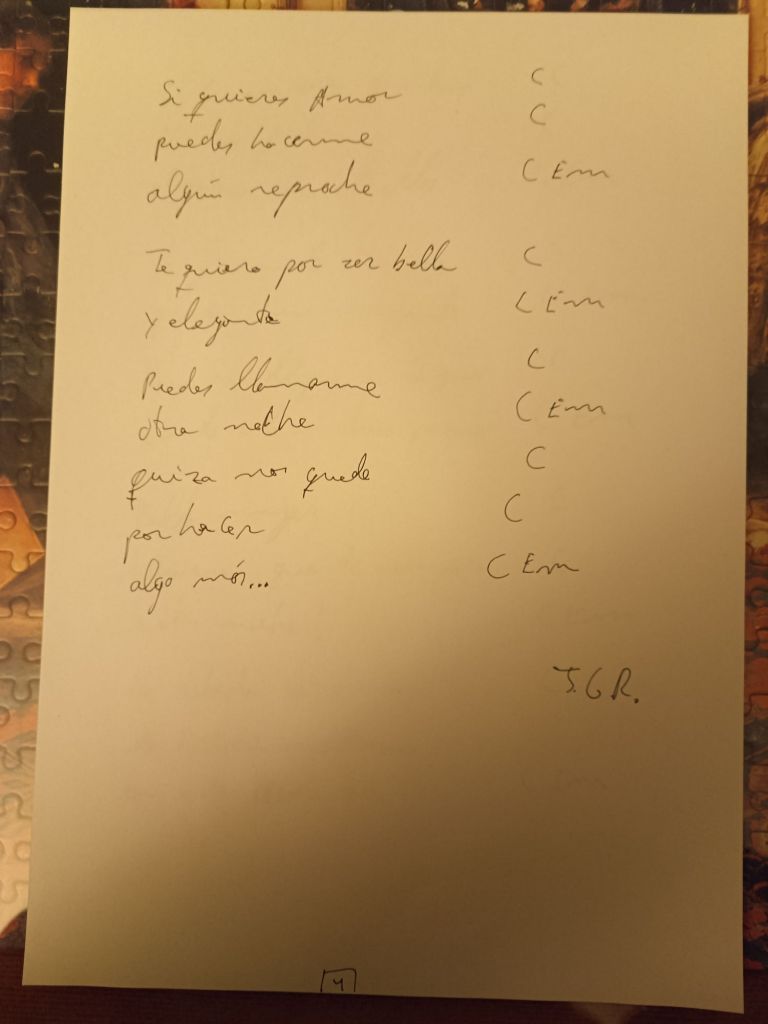 Si quieres Amor C
puedes hacerme C
algún reproche C Em
Te quiero por ser bella C
y elegante C Em
Puedes llamarme C
otra noche C Em
quiza nos quede C
por hacer C
algo más... C Em
J.G.R.
4